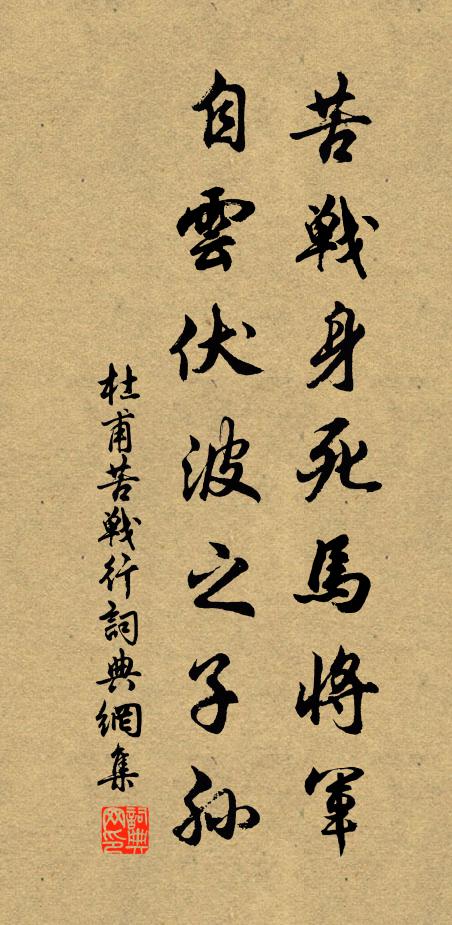 苦戰身死馬將軍
自雲伏波之子孫
杜甫苦戰行詞典網集
詞典網印